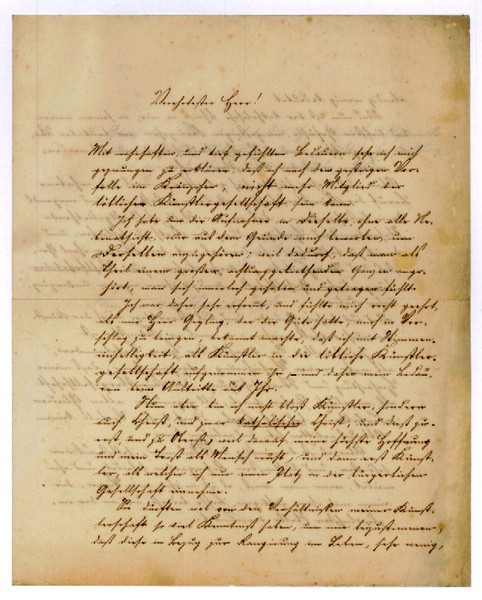 Verehrtester Herr!
Mit wahrhaftem und tief gefühltem Bedauern sehe ich mich
gezwungen zu erklären, daß ich nach dem gestrigen Vor-
falle im nicht mehr Mitglied der
löblichen Künstlergesellschaft sein kann.
Ich habe um die Aufnahme in Dieselbe, ohne alle Ne-
benabsicht, nur aus dem Grunde mich beworben, um
Derselben anzugehören; weil dadurch, daß man als
Theil einem großen, achtunggebietenden Ganzen ange-
hört, man sich innerlich gehoben und getragen fühlt.
Ich war daher sehr erfreut, und fühlte mich recht geehrt,
als mir Herr der die Güte hatte, mich in Vor-
schlag zu bringen, bekannt machte, daß ich mit Stimmen-
einhelligkeit, als Künstler in die löbliche Künstler-
gesellschaft aufgenommen sei – und daher mein Bedau-
ern beim Austritte aus Ihr.
Nun aber bin ich nicht bloß Künstler, sondern
auch Christ, und zwar katholischer Christ, und das zu-
erst, und zu Oberst; weil darauf meine höchste Hoffnung
und mein Trost als Mensch ruht, und dann erst Künst-
ler, als welcher ich nur einen Platz in der bürgerlichen
Gesellschaft einnehme.
Sie dürften viel von den Verhältnissen meiner Künst-
lerschaft so viel Kenntniß haben, um mir beizustimmen,
daß diese in Bezug zur Rangirung im Leben, sehr wenig,